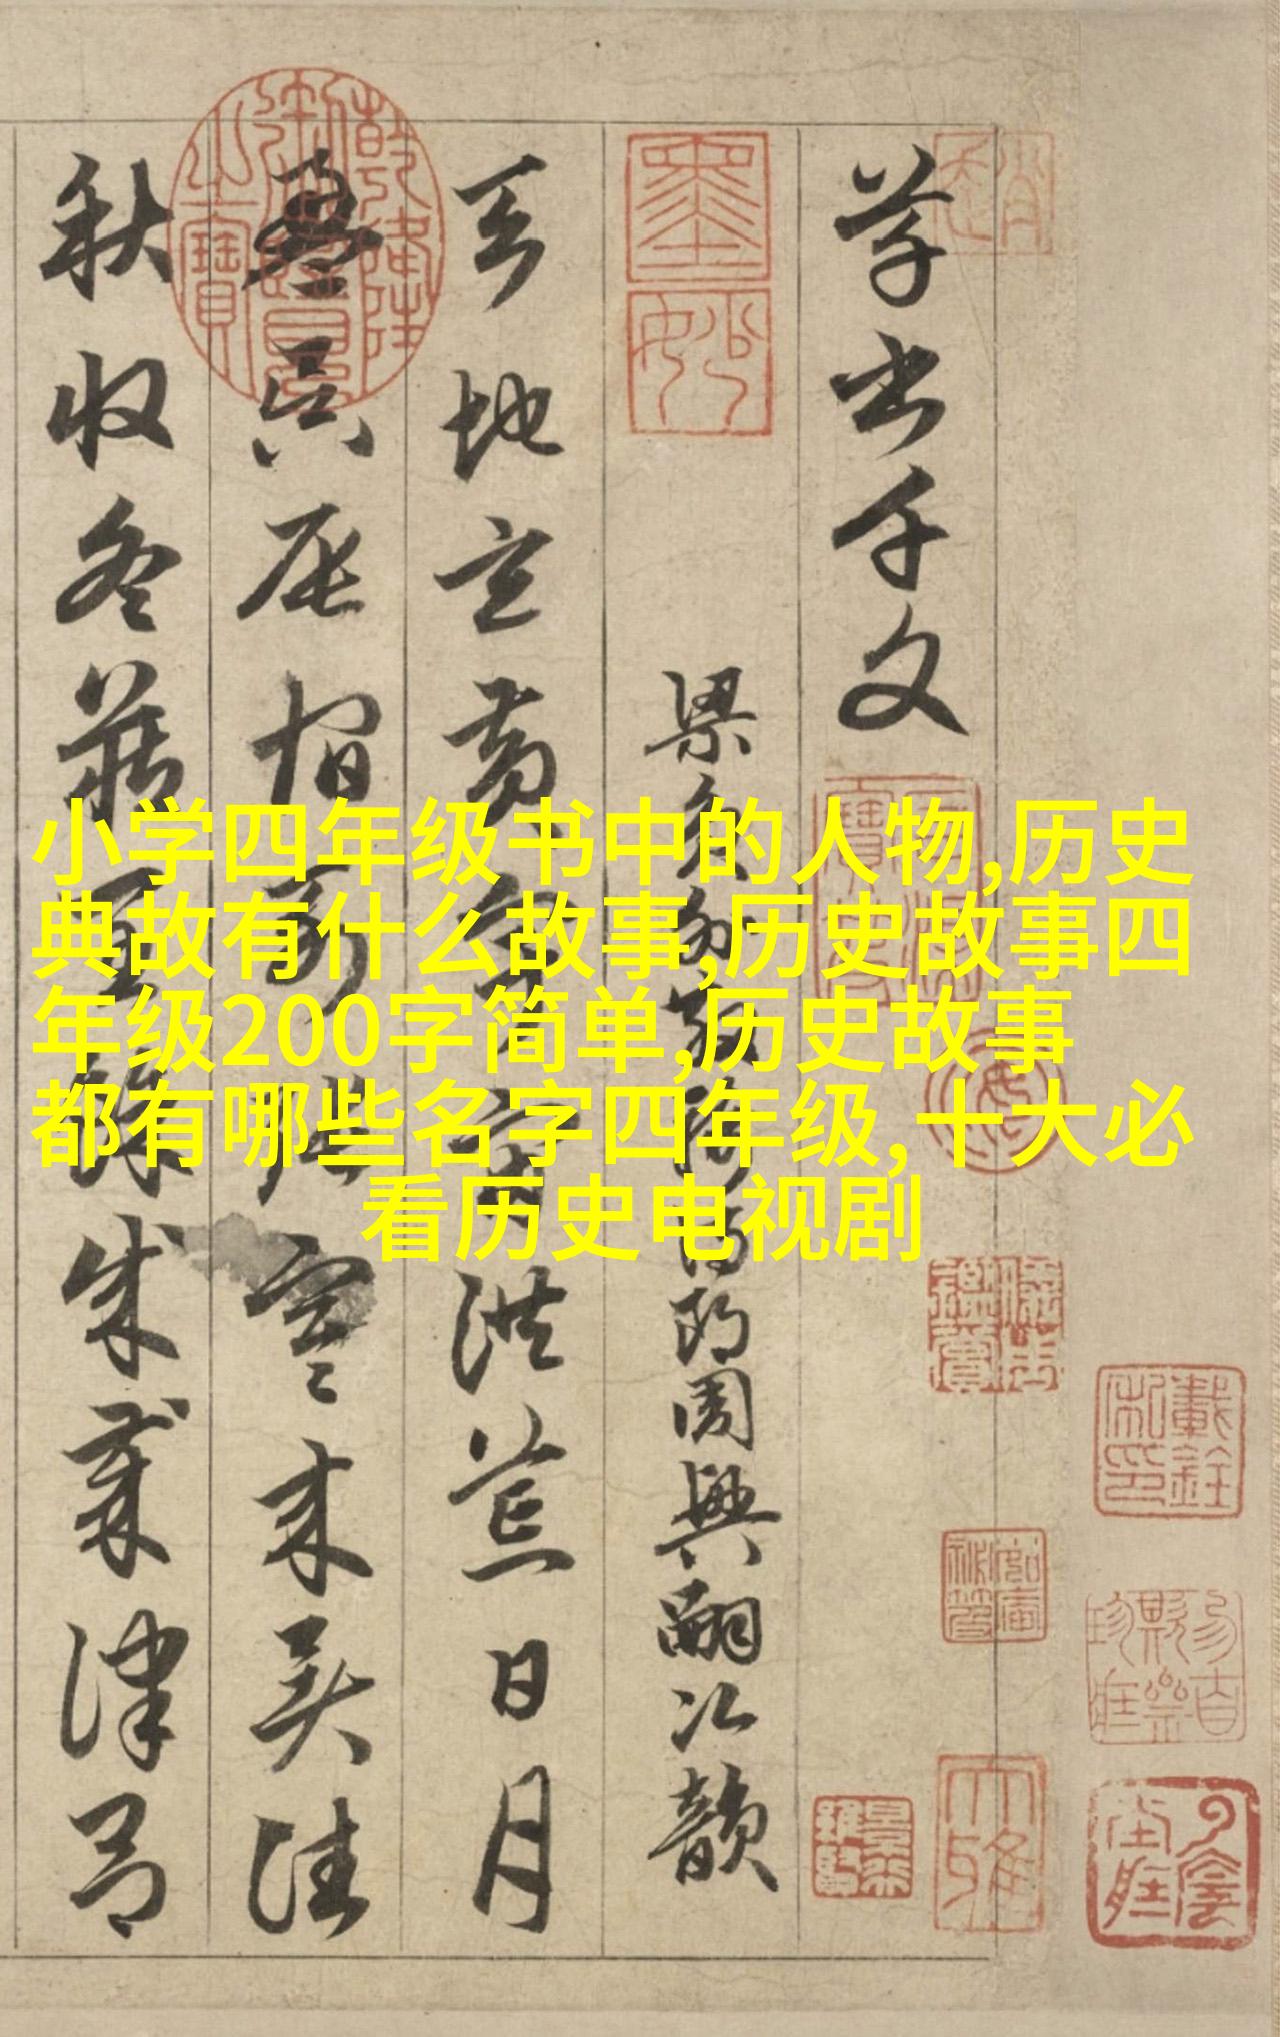 小学四年级书中的人物,历史
典故有什么故事,历史故事四
年级200字简单,历史故事
都有哪些名字四年级,十大必
看历史电视剧
草書千文
梁員外散騎侍郎周興嗣次韻
天地玄黃宇宙洪荒日月
盈昃辰宿列張寒來暑往
秋收冬藏閏餘成歲律呂
墨妙
乾隆御覽之寶
大雅